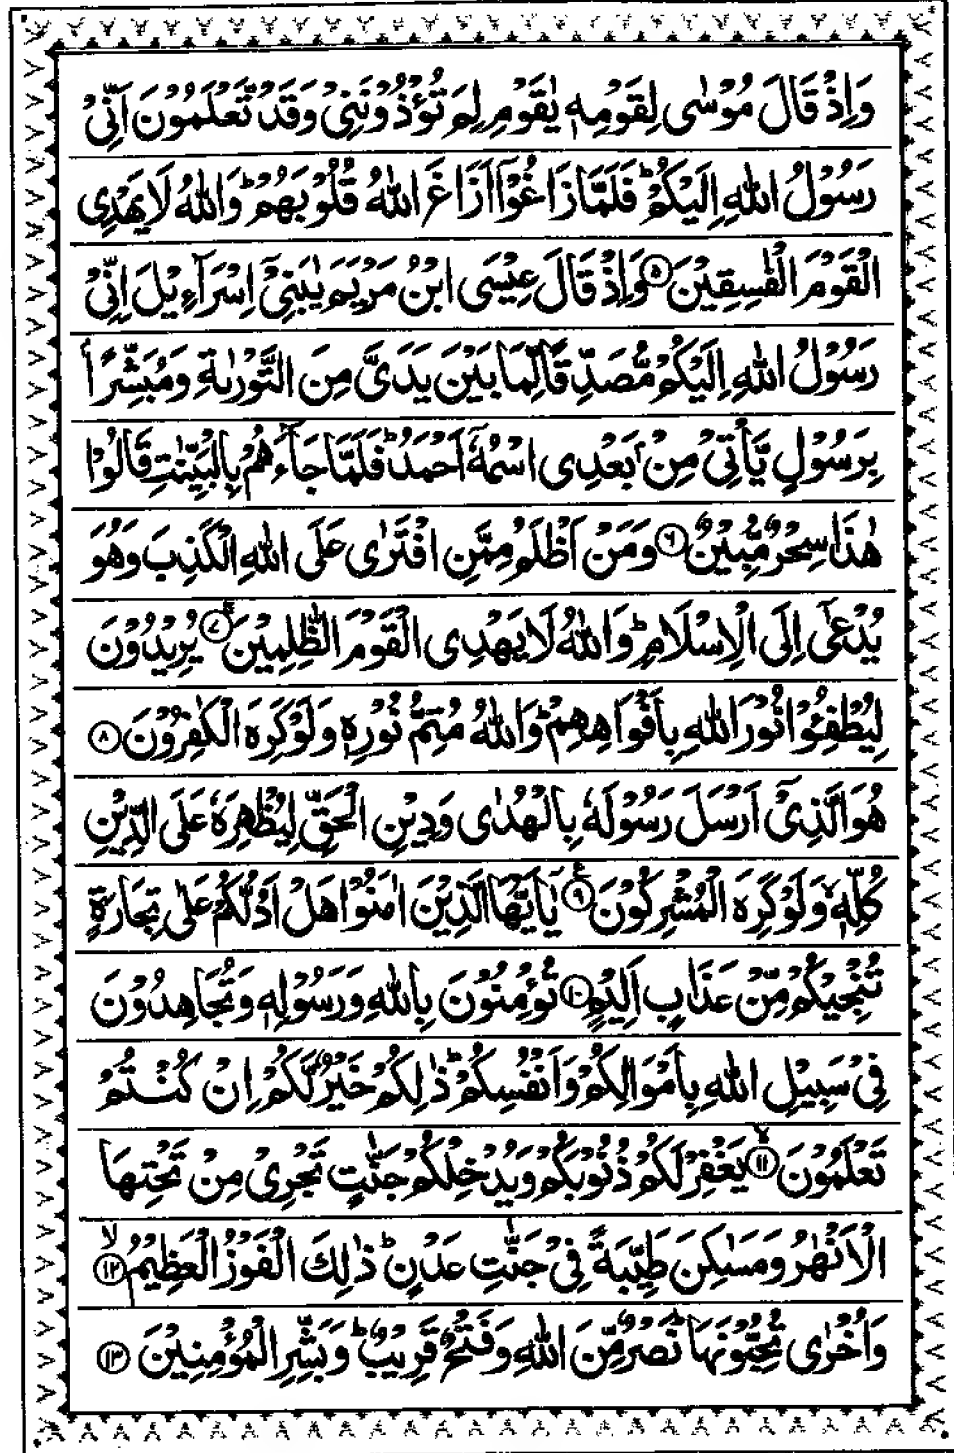 وَاِذْ قَالَ مُوْسٰى لِقَوْمِهٖ يٰقَوْمِ لِمَ تُؤْذُوْنَنِيْ وَقَدْ تَّعْلَمُوْنَ اَنِّيْ
رَسُوْلُ اللّٰهِ اِلَيْكُمْ ؕ فَلَمَّا زَاغُوْۤا اَزَاغَ اللّٰهُ قُلُوْبَهُمْ ؕ وَاللّٰهُ لَا يَهْدِى
الْقَوْمَ الْفٰسِقِيْنَ ۵ وَاِذْ قَالَ عِيْسَى ابْنُ مَرْيَمَ يٰبَنِيْۤ اِسْرَآءِيْلَ اِنِّيْ
رَسُوْلُ اللّٰهِ اِلَيْكُمْ مُّصَدِّقًا لِّمَا بَيْنَ يَدَيَّ مِنَ التَّوْرٰىةِ وَمُبَشِّرًۢا
بِرَسُوْلٍ يَّاْتِيْ مِنْۢ بَعْدِى اسْمُهٗۤ اَحْمَدُ ؕ فَلَمَّا جَآءَهُمْ بِالْبَيِّنٰتِ قَالُوْا
هٰذَا سِحْرٌ مُّبِيْنٌ ۶ وَمَنْ اَظْلَمُ مِمَّنِ افْتَرٰى عَلَى اللّٰهِ الْكَذِبَ وَهُوَ
يُدْعٰۤى اِلَى الْاِسْلَامِ ؕ وَاللّٰهُ لَا يَهْدِى الْقَوْمَ الظّٰلِمِيْنَ ۷ يُرِيْدُوْنَ
لِيُطْفِـُٔوْا نُوْرَ اللّٰهِ بِاَفْوَاهِهِمْ ؕ وَاللّٰهُ مُتِمُّ نُوْرِهٖ وَلَوْ كَرِهَ الْكٰفِرُوْنَ ۸
هُوَ الَّذِيْۤ اَرْسَلَ رَسُوْلَهٗ بِالْهُدٰى وَدِيْنِ الْحَقِّ لِيُظْهِرَهٗ عَلَى الدِّيْنِ
كُلِّهٖ ۙ وَلَوْ كَرِهَ الْمُشْرِكُوْنَ ۹ يٰۤاَيُّهَا الَّذِيْنَ اٰمَنُوْا هَلْ اَدُلُّكُمْ عَلٰى تِجَارَةٍ
تُنْجِيْكُمْ مِّنْ عَذَابٍ اَلِيْمٍ ۱۰ تُؤْمِنُوْنَ بِاللّٰهِ وَرَسُوْلِهٖ وَتُجَاهِدُوْنَ
فِيْ سَبِيْلِ اللّٰهِ بِاَمْوَالِكُمْ وَاَنْفُسِكُمْ ؕ ذٰلِكُمْ خَيْرٌ لَّكُمْ اِنْ كُنْتُمْ
تَعْلَمُوْنَ ۱۱ۙ يَغْفِرْ لَكُمْ ذُنُوْبَكُمْ وَيُدْخِلْكُمْ جَنّٰتٍ تَجْرِيْ مِنْ تَحْتِهَا
الْاَنْهٰرُ وَمَسٰكِنَ طَيِّبَةً فِيْ جَنّٰتِ عَدْنٍ ؕ ذٰلِكَ الْفَوْزُ الْعَظِيْمُ ۱۲ۙ
وَاُخْرٰى تُحِبُّوْنَهَا ؕ نَصْرٌ مِّنَ اللّٰهِ وَفَتْحٌ قَرِيْبٌ ؕ وَبَشِّرِ الْمُؤْمِنِيْنَ ۱۳